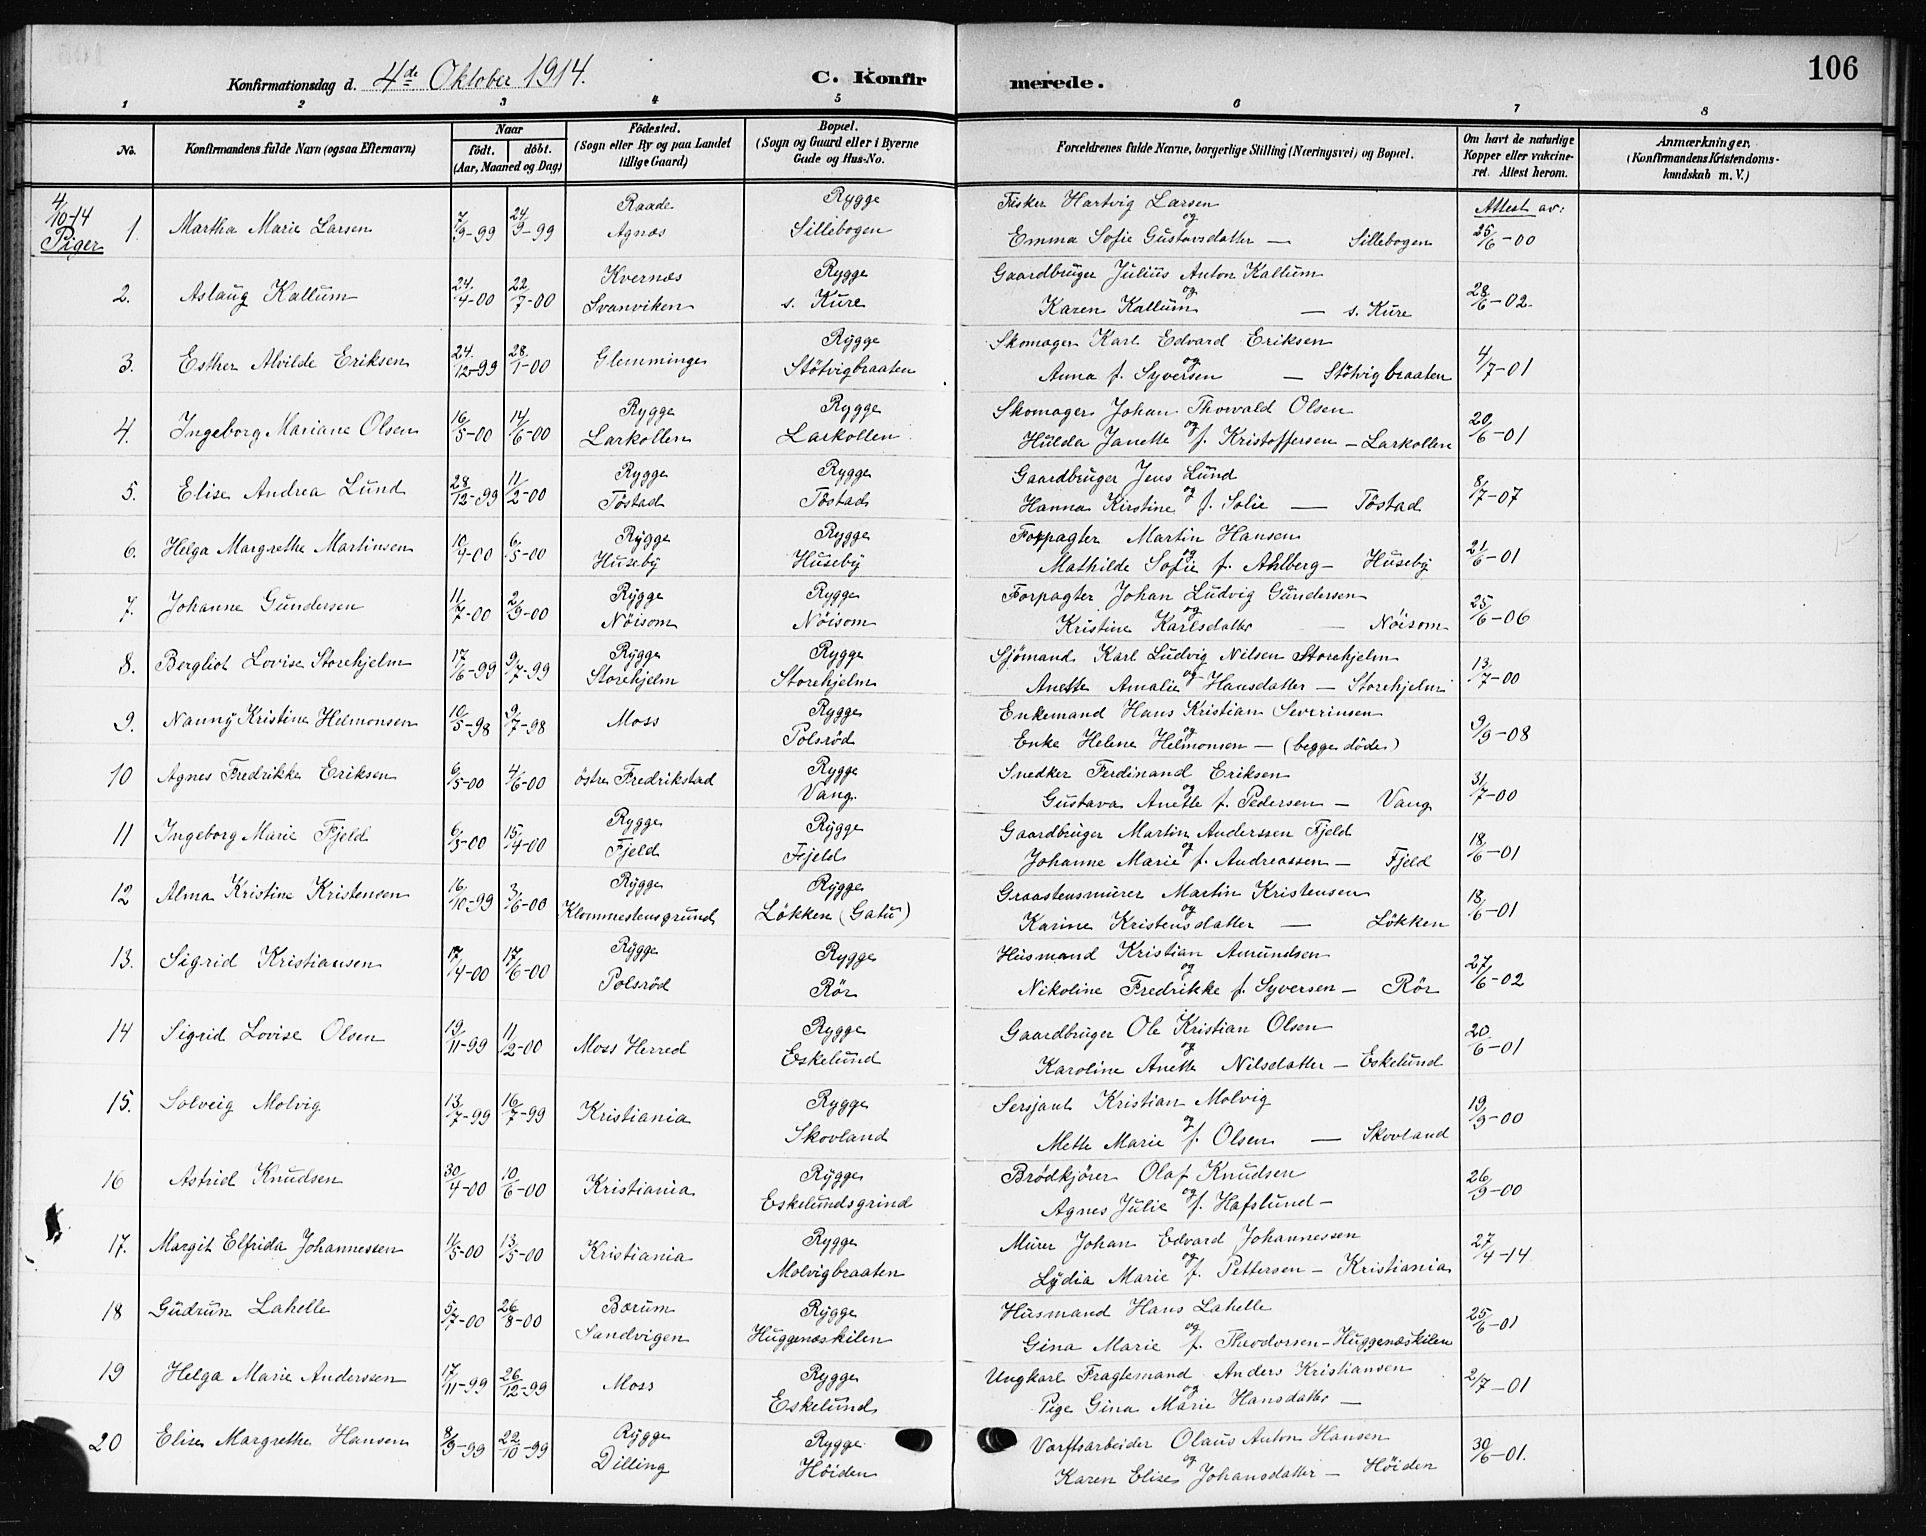 106
Konfirmationsdag d. 4de Oktober 1914.
C. Konfirmerede.
1 2 3 4 5 6 7 8
No.
Konfirmandens fulde Navn (ogsaa Efternavn)
Naar
födt. döbt.
(Aar, Maaned og Dag)
Födested.
(Sogn eller By og paa Landet
tillige Gaard)
Bopæl.
(Sogn og Gaard eller i Byerne
Gade og Hus-No.
Forældrenes fulde Navne, borgerlige Stilling (Næringsvei) og Bopæl.
Om havt de naturlige
Kopper eller vakcine-
ret. Attest herom.
Anmærkninger.
(Konfirmandens Kristendoms-
kundskab m. V.)
4/10-14
Piger
Attest av:
1. Martha Marie Larsen 7/9-99 24/9-99 Raade Rygge Fisker Hartvig Larsen 25/6-00
Agnæs Sillebogen og Emma Sofie Gustavsdatter — Sillebogen
2. Aslaug Kallum 24/4-00 22/7-00 Kvernæs Rygge Gaardbruger Julius Anton Kallum 28/6-02
Svanviken s. Kure og Karen Kallum — s. Kure
3. Esther Alvilde Eriksen 24/12-99 28/1-00 Glemminge Rygge Skomager Karl Edvard Eriksen 4/7-01
Stötvigbraaten og Anna f. Syversen — Stötvigbraaten
4. Ingeborg Mariane Olsen 16/5-00 14/6-00 Rygge Rygge Skomager Johan Thorvald Olsen 20/6-01
Larkollen Larkollen og Hulda Janette f. Kristoffersen — Larkollen
5. Elise Andrea Lund 28/12-99 11/2-00 Rygge Rygge Gaardbruger Jens Lund 8/7-07
Töstad Töstad og Hanna Kirstine f. Solie — Töstad
6. Helga Margrethe Martinsen 10/4-00 6/5-00 Rygge Rygge Forpagter Martin Hansen 21/6-01
Huseby Huseby og Mathilde Sofie f. Ahlberg — Huseby
7. Johanne Gundersen 11/7-00 2/9-00 Rygge Rygge Forpagter Johan Ludvig Gundersen 25/6-06
Nöisom Nöisom og Kristine Karlsdatter — Nöisom
8. Bergliot Lovise Storehjelm 17/6-99 9/7-99 Rygge Rygge Sjömand Karl Ludvig Nilsen Storehjelm 13/7-00
Storehjelm Storehjelm og Anette Amalie Hansdatter — Storehjelm
9. Nanny Kristine Helmonsen 10/5-98 9/7-98 Moss Rygge Enkemand Hans Kristian Severinsen 9/9-08
Polsröd og Enke Helene Helmonsen — (begge döde)
10 Agnes Fredrikke Eriksen 6/5-00 4/6-00 östre Fredrikstad Rygge Snedker Ferdinand Eriksen 31/7-00
Vang. og Gustava Anette f. Pedersen — Vang
11 Ingeborg Marie Fjeld 6/3-00 15/4-00 Rygge Rygge Gaardbruger Martin Anderssen Fjeld 18/6-01
Fjeld Fjeld og Johanne Marie f. Andreassen — Fjeld
12 Alma Kristine Kristensen 16/10-99 3/6-00 Rygge Rygge Graastensmurer Martin Kristensen 18/6-01
Klommestensgrund Lökken (Gatu) og Karine Kristensdatter — Lökken
13. Sigrid Kristiansen 17/4-00 17/6-00 Rygge Rygge Husmand Kristian Amundsen 27/6-02
Polsröd Rör og Nikoline Fredrikke f. Syversen — Rör
14 Sigrid Lovise Olsen 19/11-99 11/2-00 Moss Herred Rygge Gaardbruger Ole Kristian Olsen 20/6-01
Eskelund og Karoline Anette Nilsdatter — Eskelund
15. Solveig Molvig 13/7-99 16/7-99 Kristiania Rygge Sersjant Kristian Molvig 19/9-00
Skovland og Mette Marie f. Olsen — Skovland
16 Astrid Knudsen 30/4-00 10/6-00 Kristiania Rygge Brödkjörer Olaf Knudsen 26/9-00
Eskelundsgrind og Agnes Julie f. Hafslund —
17. Margit Elfrida Johannessen 11/5-00 13/5-00 Kristiania Rygge Murer Johan Edvard Johannessen 27/4-14
Molvigbraaten og Lydia Marie f. Pettersen — Kristiania
18 Gudrun Lahelle 5/7-00 26/8-00 Bærum Rygge Husmand Hans Lahelle 25/6-01
Sandvigen Huggenæskilen og Gina Marie f. Theodorsen — Huggenæskilen
19 Helga Marie Anderssen 17/11-99 26/12-99 Moss Rygge Ungkarl Fragtemand Anders Kristiansen 2/7-01
Eskelund og Pige Gina Marie Hansdatter —
20 Elise Margrethe Hansen 8/9-99 22/10-99 Rygge Rygge Værftsarbeider Olaus Anton Hansen 30/6-01.
Dilling Höiden og Karen Elise Johansdatter — Höiden